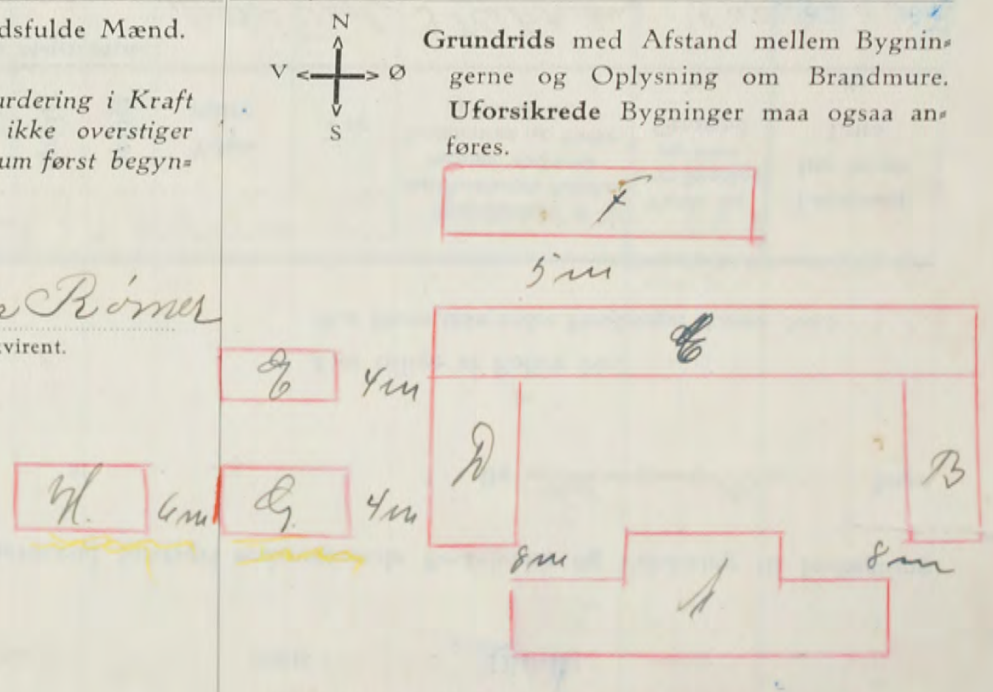 dsfulde Mænd.
urdering i Kraft
ikke overstiger
um først begyn=
Rømer
virent.
N
V Ø
S
Grundrids med Afstand mellem Bygnin=
gerne og Oplysning om Brandmure.
Uforsikrede Bygninger maa ogsaa an=
føres.
F
5 m
C
E 4 m
D
B
H. 6 m G. 4 m
8 m 8 m
A